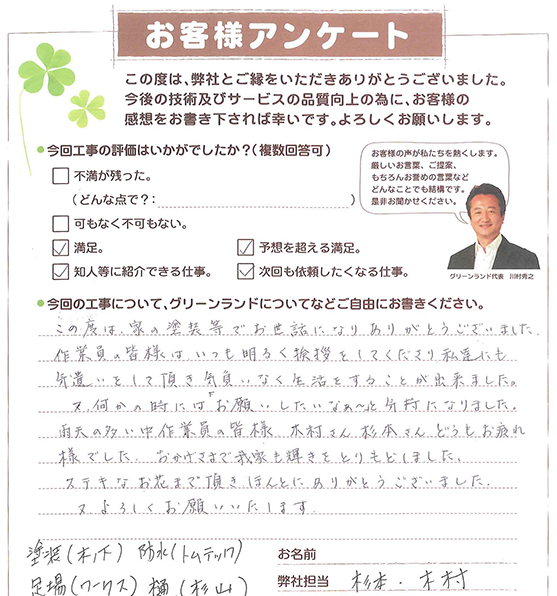 お客様アンケート
この度は、弊社とご縁をいただきありがとうございました。
今後の技術及びサービスの品質向上の為に、お客様の
感想をお書き下されば幸いです。よろしくお願いします。
今回工事の評価はいかがでしたか？（複数回答可）
不満が残った。
（どんな点で？：　）
可もなく不可もない。
満足。
予想を超える満足。
知人等に紹介できる仕事。
次回も依頼したくなる仕事。
お客様の声が私たちを熱くします。
厳しいお言葉、ご提案、
もちろんお誉めの言葉など
どんなことでも結構です。
是非お聞かせください。
グリーンランド代表　川村秀之
今回の工事について、グリーンランドについてなどご自由にお書きください。
この度は、家の塗装等でお世話になりありがとうございました。
作業員の皆様は、いつも明るく挨拶をしてくださり私達にも
気遣いをして頂き気負いなく生活をすることが出来ました。
又、何かの時には お願いしたいなぁ〜と気持になりました。
雨天の多い中作業員の皆様 木村さん 杉本さん どうもお疲れ
様でした。おかげさまで我家も輝きをとりもどしました。
ステキなお花まで頂きほんとにありがとうございました。
又よろしくお願いいたします。
塗装(木下) 防水(トムテック)
足場(ワークス) 樋(杉山)
お名前
弊社担当 杉本・木村